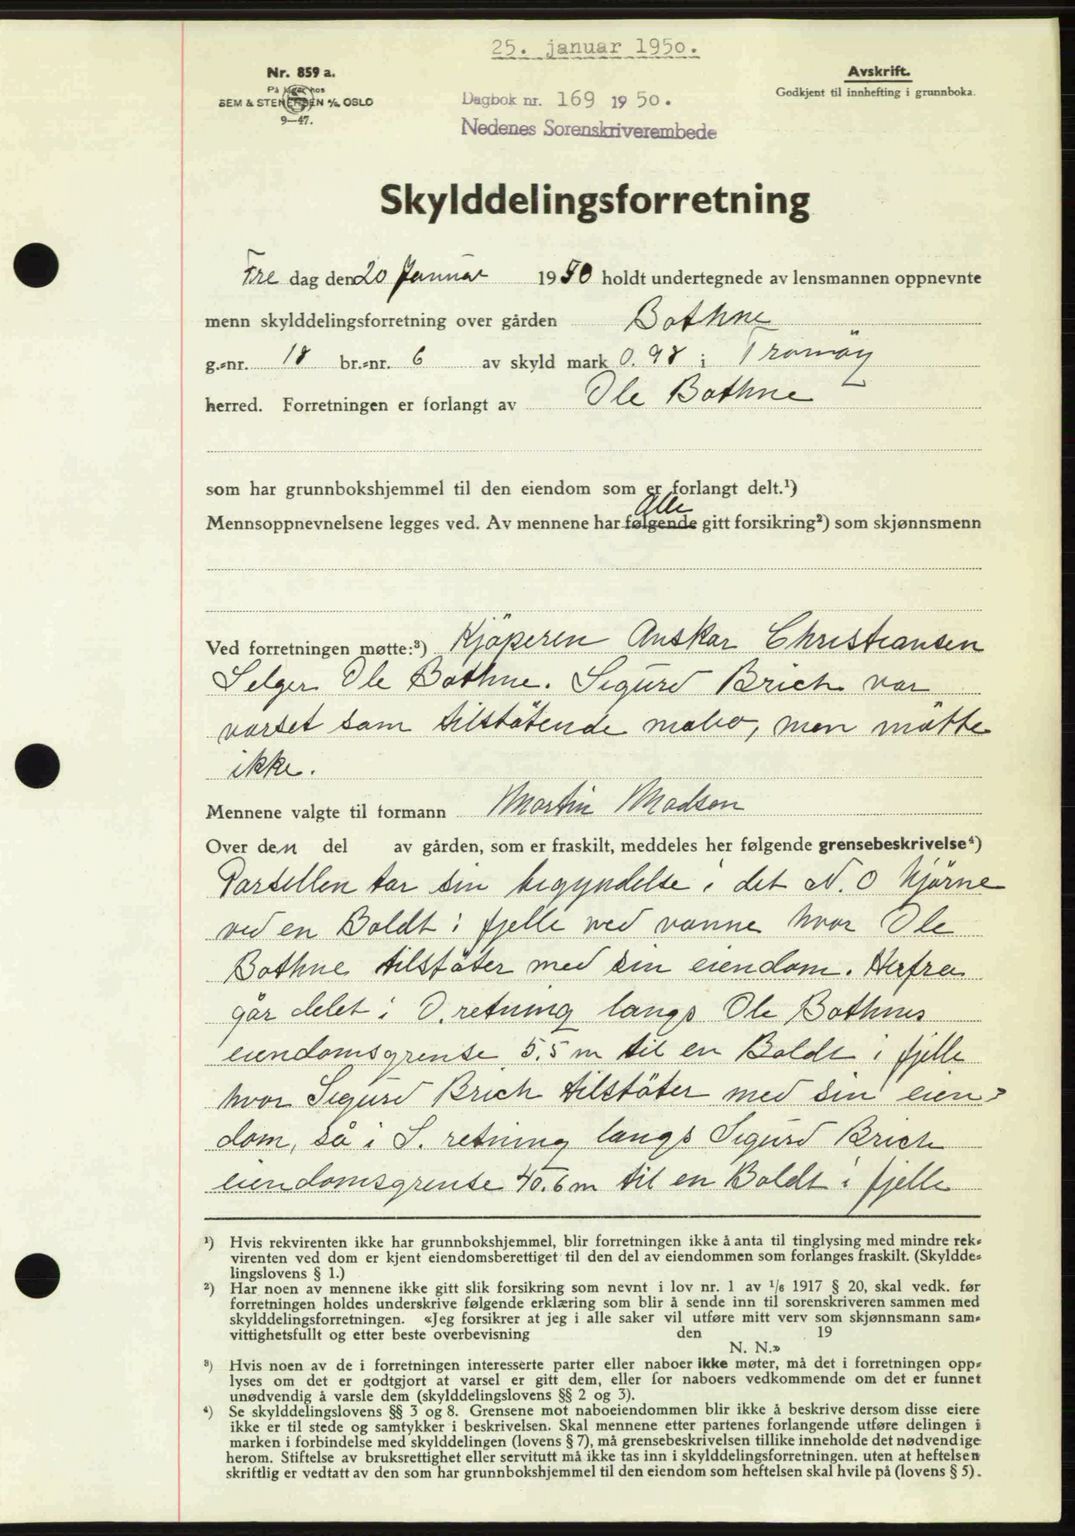 25. januar 1950.
Nr. 859 a.
På lager hos
SEM & STENERSEN A/S OSLO
9—47.
Avskrift.
Godkjent til innhefting i grunnboka.
Dagbok nr. 169 19 50.
Nedenes Sorenskriverembede
Skylddelingsforretning
Fre dag den 20 Januar 1950 holdt undertegnede av lensmannen oppnevnte
menn skylddelingsforretning over gården Bothne
g.-nr. 18 br.-nr. 6 av skyld mark 0.98 i Tromöy
herred. Forretningen er forlangt av Ole Bothne
som har grunnbokshjemmel til den eiendom som er forlangt delt.¹)
Alle
Mennsoppnevnelsene legges ved. Av mennene har følgende gitt forsikring²) som skjønnsmenn
Ved forretningen møtte:³) Kjöperen Anskar Christiansen
Selger Ole Bothne. Sigurd Brich var
varset som tilstötende nabo, men mötte
ikke.
Mennene valgte til formann Martin Madsen
Over den del av gården, som er fraskilt, meddeles her følgende grensebeskrivelse⁴)
Parsellen tar sin begyndelse i det N. O hjörne
ved en Boldt i fjelle ved vanne hvor Ole
Bothne tilstöter med sin eiendom. Herfra
går delet i O. retning langs Ole Bothnes
eiendomsgrense 5.5 m til en Boldt i fjelle
hvor Sigurd Brich tilstöter med sin eien-
dom, så i S. retning langs Sigurd Brich
eiendomsgrense 40.6 m til en Boldt i fjelle
¹) Hvis rekvirenten ikke har grunnbokshjemmel, blir forretningen ikke å anta til tinglysing med mindre rek-
virenten ved dom er kjent eiendomsberettiget til den del av eiendommen som forlanges fraskilt. (Skyldde-
lingslovens § 1.)
²) Har noen av mennene ikke gitt slik forsikring som nevnt i lov nr. 1 av 1/6 1917 § 20, skal vedk. før
forretningen holdes underskrive følgende erklæring som blir å sende inn til sorenskriveren sammen med
skylddelingsforretningen. «Jeg forsikrer at jeg i alle saker vil utføre mitt verv som skjønnsmann sam-
vittighetsfullt og etter beste overbevisning den 19
N. N.»
³) Hvis noen av de i forretningen interesserte parter eller naboer ikke møter, må det i forretningen opp-
lyses om det er godtgjort at varsel er gitt dem, eller for naboers vedkommende om det er funnet
unødvendig å varsle dem (skylddelingslovens §§ 2 og 3).
⁴) Se skylddelingslovens §§ 3 og 8. Grensene mot naboeiendommen blir ikke å beskrive dersom disse eiere
ikke er til stede og samtykker i beskrivelsen. Skal mennene etter partenes forlangende utføre delingen i
marken i forbindelse med skylddelingen (lovens § 7), må grensebeskrivelsen tillike inneholde det nødvendige
herom. Stiftelse av bruksrettighet eller servitutt må ikke tas inn i skylddelingsforretningen. uten at heftelsen
skriftlig er vedtatt av den som har grunnbokshjemmel til den eiendom som heftelsen skal hvile på (lovens § 5).